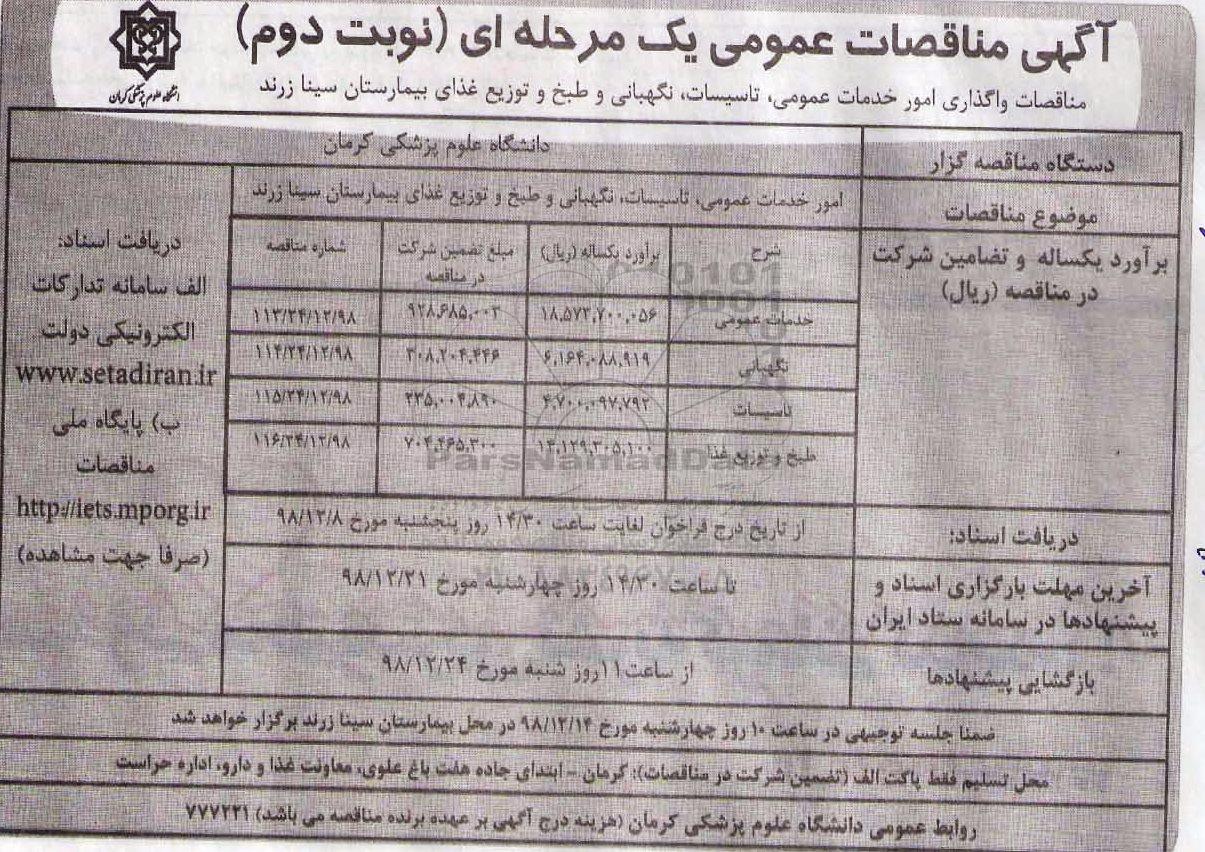 آگهی مناقصات عمومی یک مرحله ای (نوبت دوم)
دانشگاه علوم پزشکی کرمان
مناقصات واگذاری امور خدمات عمومی، تاسیسات، نگهبانی و طبخ و توزیع غذای بیمارستان سینا زرند
دستگاه مناقصه گزار
دانشگاه علوم پزشکی کرمان
موضوع مناقصات
امور خدمات عمومی، تاسیسات، نگهبانی و طبخ و توزیع غذای بیمارستان سینا زرند
برآورد یکساله و تضامین شرکت
در مناقصه (ریال)
شرح
برآورد یکساله (ریال)
مبلغ تضمین شرکت
در مناقصه
شماره مناقصه
خدمات عمومی
۱۸,۵۷۳,۷۰۰,۰۵۶
۹۲۸,۶۸۵,۰۰۳
۱۱۳/۲۴/۱۲/۹۸
نگهبانی
۶,۱۶۴,۰۸۸,۹۱۹
۳۰۸,۲۰۴,۴۴۶
۱۱۴/۲۴/۱۲/۹۸
تاسیسات
۴,۷۰۰,۰۹۷,۷۹۲
۲۳۵,۰۰۴,۸۹۰
۱۱۵/۲۴/۱۲/۹۸
طبخ و توزیع غذا
۱۴,۱۲۹,۳۰۵,۱۰۰
۷۰۴,۴۶۵,۳۰۰
۱۱۶/۲۴/۱۲/۹۸
دریافت اسناد:
الف سامانه تدارکات
الکترونیکی دولت
www.setadiran.ir
ب) پایگاه ملی
مناقصات
http://iets.mporg.ir
(صرفا جهت مشاهده)
دریافت اسناد:
از تاریخ درج فراخوان لغایت ساعت ۱۴/۳۰ روز پنجشنبه مورخ ۹۸/۱۲/۸
آخرین مهلت بارگزاری اسناد و
پیشنهادها در سامانه ستاد ایران
تا ساعت ۱۴/۳۰ روز چهارشنبه مورخ ۹۸/۱۲/۲۱
بازگشایی پیشنهادها
از ساعت ۱۱ روز شنبه مورخ ۹۸/۱۲/۲۴
ضمنا جلسه توجیهی در ساعت ۱۰ روز چهارشنبه مورخ ۹۸/۱۲/۱۴ در محل بیمارستان سینا زرند برگزار خواهد شد
محل تسلیم فقط پاکت الف (تضمین شرکت در مناقصات): کرمان - ابتدای جاده هفت باغ علوی، معاونت غذا و دارو، اداره حراست
روابط عمومی دانشگاه علوم پزشکی کرمان (هزینه درج آگهی بر عهده برنده مناقصه می باشد) ۷۷۷۲۳۱